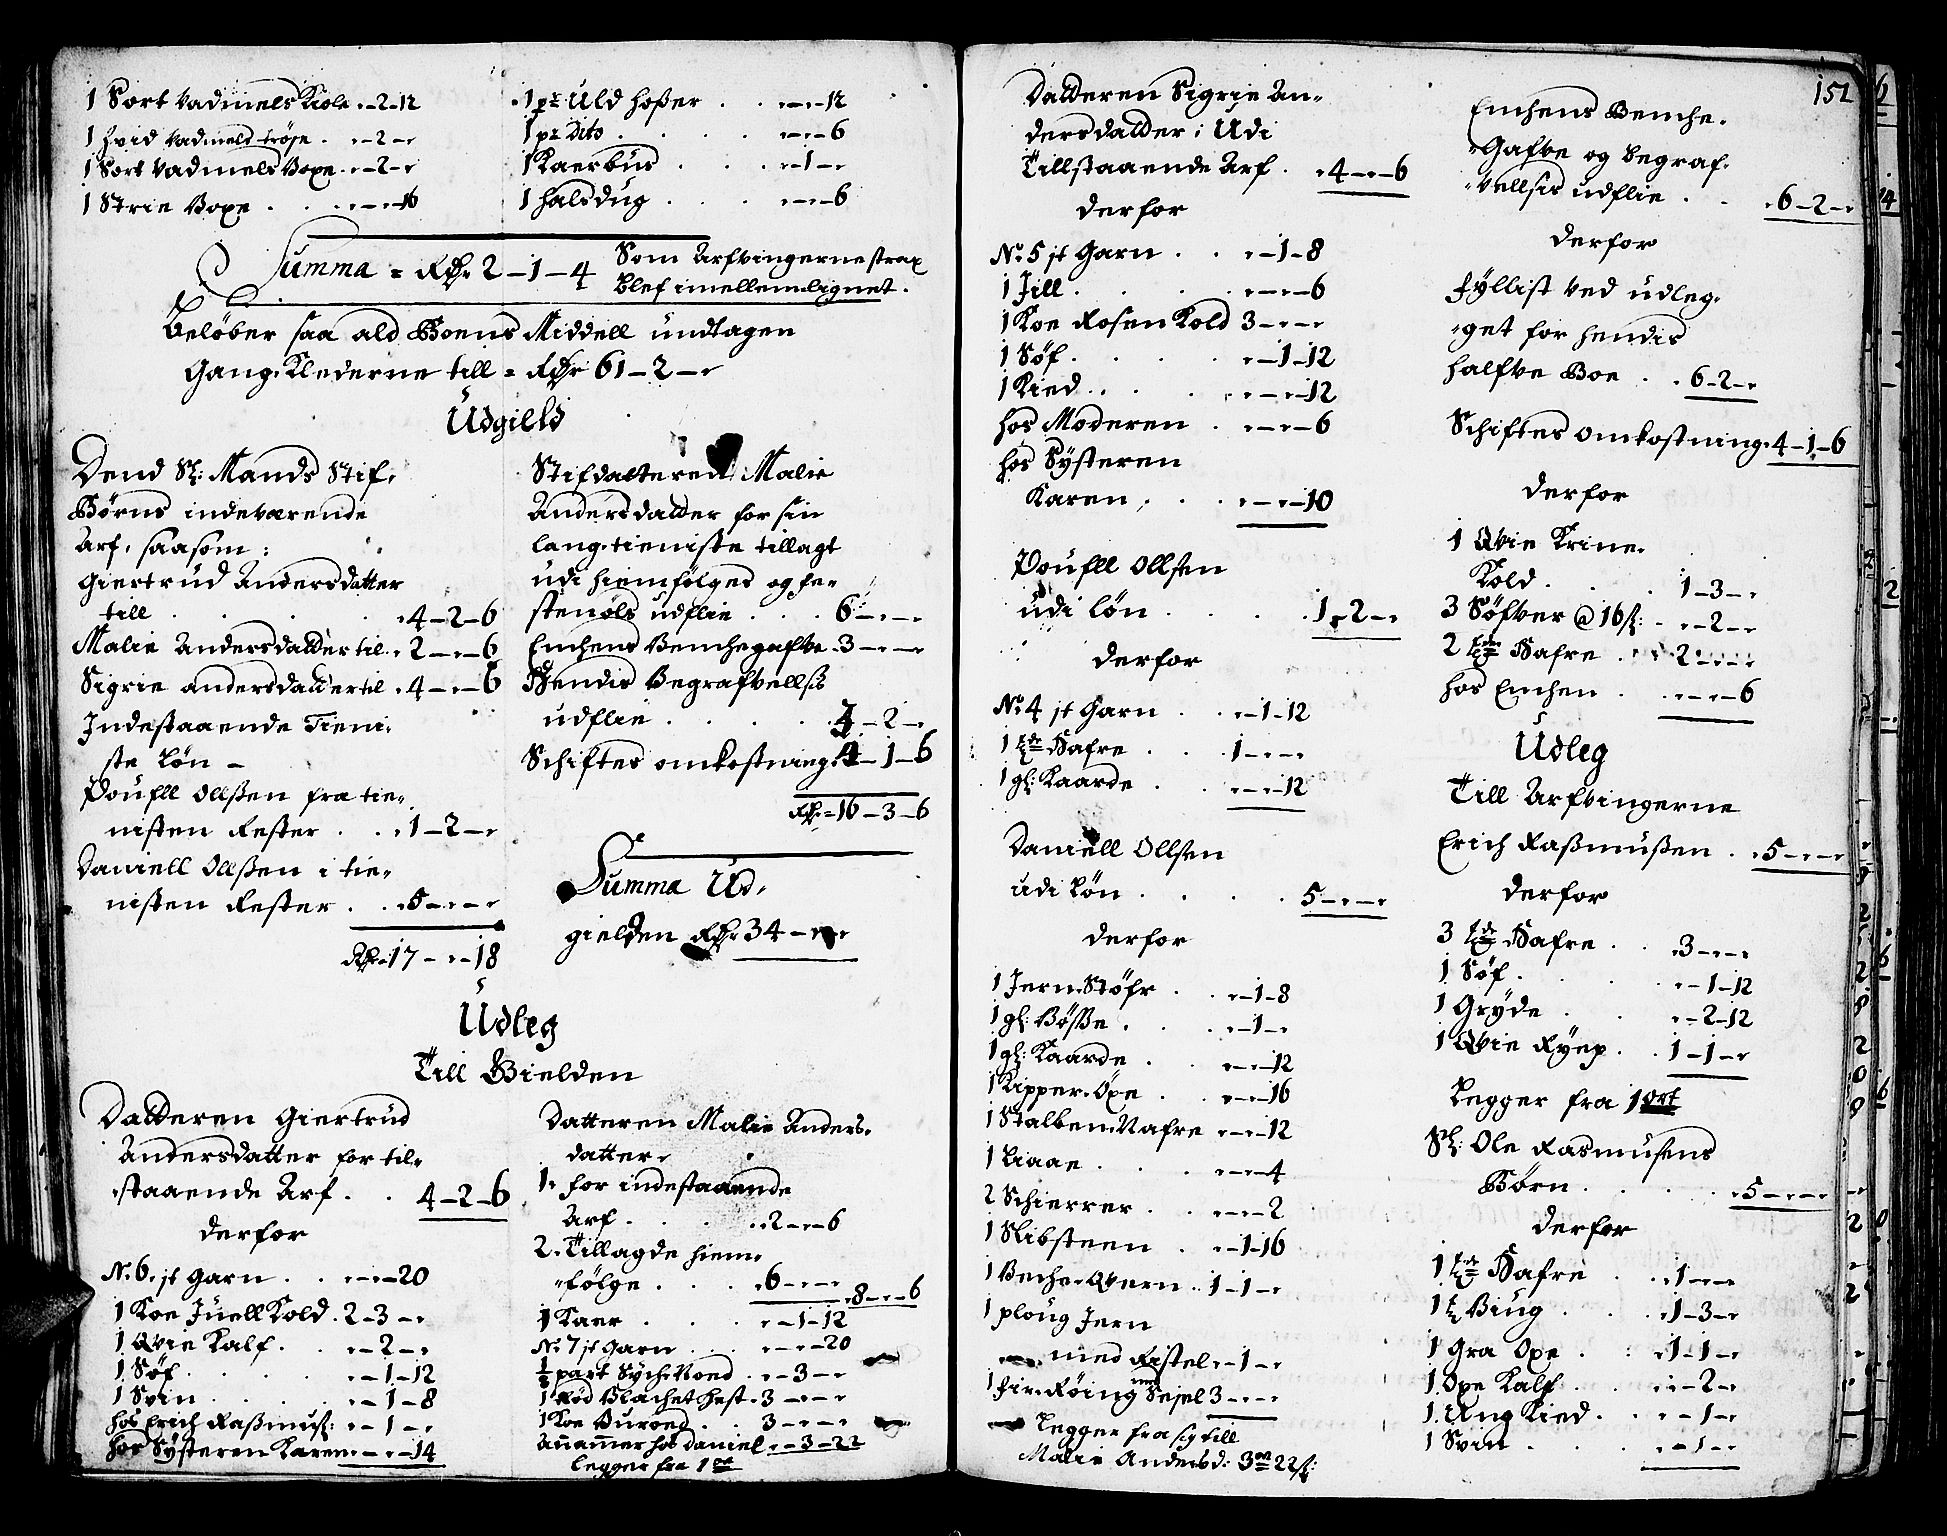 1 Sort Vadmels Kiole „–2–12
1 hvid Vadmels trøje . „–2–„
1 Sort Vadmels Boxe „–2–„
1 Strie Boxe . . . „–„–16
1 pr Uld hoßer . . „–„–12
1 pr dito . . . . „–„–6
1 Kaerbus . . . „–1–„
1 halsdug . . . „–„–6
Summa = Rdr 2–1–4 Som Arfvingerne strax
blef imellem lignet.
Beløber saa ald Boens Middell undtagen
Gang Klederne till = Rdr 61–2–„
Udgield
Dend Sl: Mands Stif„
Børns indeværende
Arf, saasom:
Giertrud Andersdatter
till . . . . . „4–2–6
Malie Andersdatter til „2–„–6
Sigrie andersdatter til „4–„–6
Indestaaende Tieni„
ste løn –
Poufll Ollßen fra tie„
nisten Rester . . „1–2–„
Daniell Ollßen i tie„
nisten Rester . . „5–„–„
Rdr=17–„–18
Stifdatteren Malie
Andersdatter for sin
lang tieniste tillagt
udi hiemfølges og fe„
stenøls udflie . . . 6–„–„
Enchens Benchegafve . 3–„–„
Hendis Begrafvellsis
udflie . . . . . 3–2–„
Schiftes omkostning. 4–1–6
Rdr=16–3–6
Summa Ud„
gielden Rdr 34–„–„
Udleg
Till Gielden
Datteren Giertrud
Andersdatter for til„
„staaende Arf . . 4–2–6
derfor
No 6. st Garn . . „–„–20
1 Koe Juell Kold . 2–3–„
1 Qvie Kalf . . „–2–„
1 Søf . . . . „–1–12
1 Svin . . . . „–1–8
hos Erich Raßmuß: „–1–„
hos Systeren Karen „–„–14
Datteren Malie Anders„
datter„
1„ for indestaaende
Arf . . . . „2–„–6
2„ Tillagde hiem„
„følge . . . „6–„–„ „8–„–6
1 Kaer . . . . „–1–12
No 7 st Garn . . . „–„–20
part Syche Noed . „–3–„
1 Rød Blachet Hest . 3–„–„
1 Koe Buroed . . 3–„–„
Anammer hos Daniel „–3–22
legger fra 1 ort
Datteren Sigrie An„
dersdatter i Udi
Tillstaaende Arf . „4–„–6
derfor
No 5 st Garn . . „–1–8
1 Fill . . . . „–„–6
1 Koe Rosen Kold 3–„–„
1 Søf . . . . „–1–12
1 Kied . . . . „–„–12
hos Moderen . „–„–6
hos Systeren
Karen . . . „–„–10
Poufll Ollsen
udi løn . . . . 1„2–„
derfor
No 4 st Garn . . „–1–12
1 tde Hafre . . . 1–„–„
1 gl: Kaarde . . „–„–12
Daniell Ollsen
udi løn . . . . 5–„–„
derfor
1 Jern Støfr . . „–1–8
1 gl: Bøsße . . „–1–„
1 gl: Kaarde . . „–„–12
1 Kipper Oxe . . „–„–16
1 Stalben Nafre „–„–12
1 Liaae . . . „–„–4
2 Schierrer . . „–„–2
1 Slibsteen . „–1–16
1 Beche Qvern . 1–1–„
1 ploug Jern
med Ristel „–1–„
1 fire Røing med Sejel 3–„–„
Legger fra sig till
Malie Andersd: 3 ort 22 ß:
152
Enchens Benche„
„Gafve og begraf„
„vellsis udflie . . „6–2–„
derfor
fyllist ved udleg„
„get for hendis
halfve Boe . „6–2–„
Schiftes omkostning. 4–1–6
derfor
1 Qvie Krine„
Kold . . . . 1–3–„
3 Søfver @ 16 ß: . „–2–„
2 tdr Hafre . . 2–„–„
hos Enchen . . „–„–6
Udleg
Till Arfvingerne
Erich Raßmußen . „5–„–„
derfor
3 tdr Hafre . . „3–„–„
1 Søf . . . . „–1–12
1 Gryde . . . „–2–12
1 Qvie Ryep . . 1–1–„
Legger fra 1 ort
Sl: Ole Rasmusens
Børn . . . . „5–„–„
derfor
1 tde Hafre . . „1–„–„
1 t Biug . . . „1–3–„
1 Gra Oxe . . „1–1–„
1 Oxe Kalf . . „–2–„
1 Ung Kied . . „–1–„
1 Svin . . . „–1–„